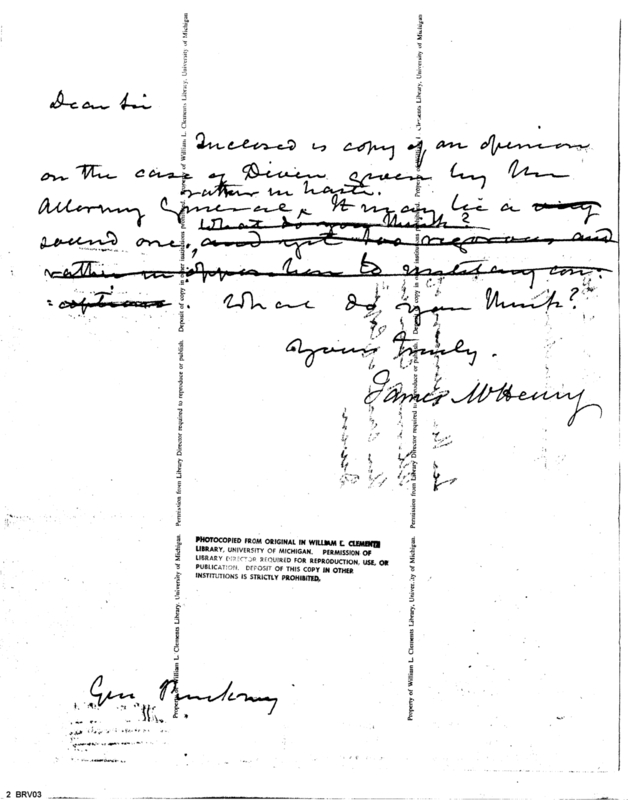 Dear Sir
Inclosed is copy of an opinion
on the case of Diven given by the
rather in haste.
Attorney General. It may be a very
What do you think?
sound one, and yet too rigorous and
rather in opposition to military con-
=ceptions. What do you think?
Yours truly.
James McHenry
PHOTOCOPIED FROM ORIGINAL IN WILLIAM L. CLEMENTS
LIBRARY, UNIVERSITY OF MICHIGAN. PERMISSION OF
LIBRARY DIRECTOR REQUIRED FOR REPRODUCTION, USE, OR
PUBLICATION. DEPOSIT OF THIS COPY IN OTHER
INSTITUTIONS IS STRICTLY PROHIBITED.
Gen Pinckney
Property of William L. Clements Library, University of Michigan. Permission from Library Director required to reproduce or publish. Deposit of copy in other institutions prohibited. Property of William L. Clements Library, University of Michigan
Property of William L. Clements Library, University of Michigan. Permission from Library Director required to reproduce or publish. Property of William L. Clements Library, University of Michigan
2 BRV03